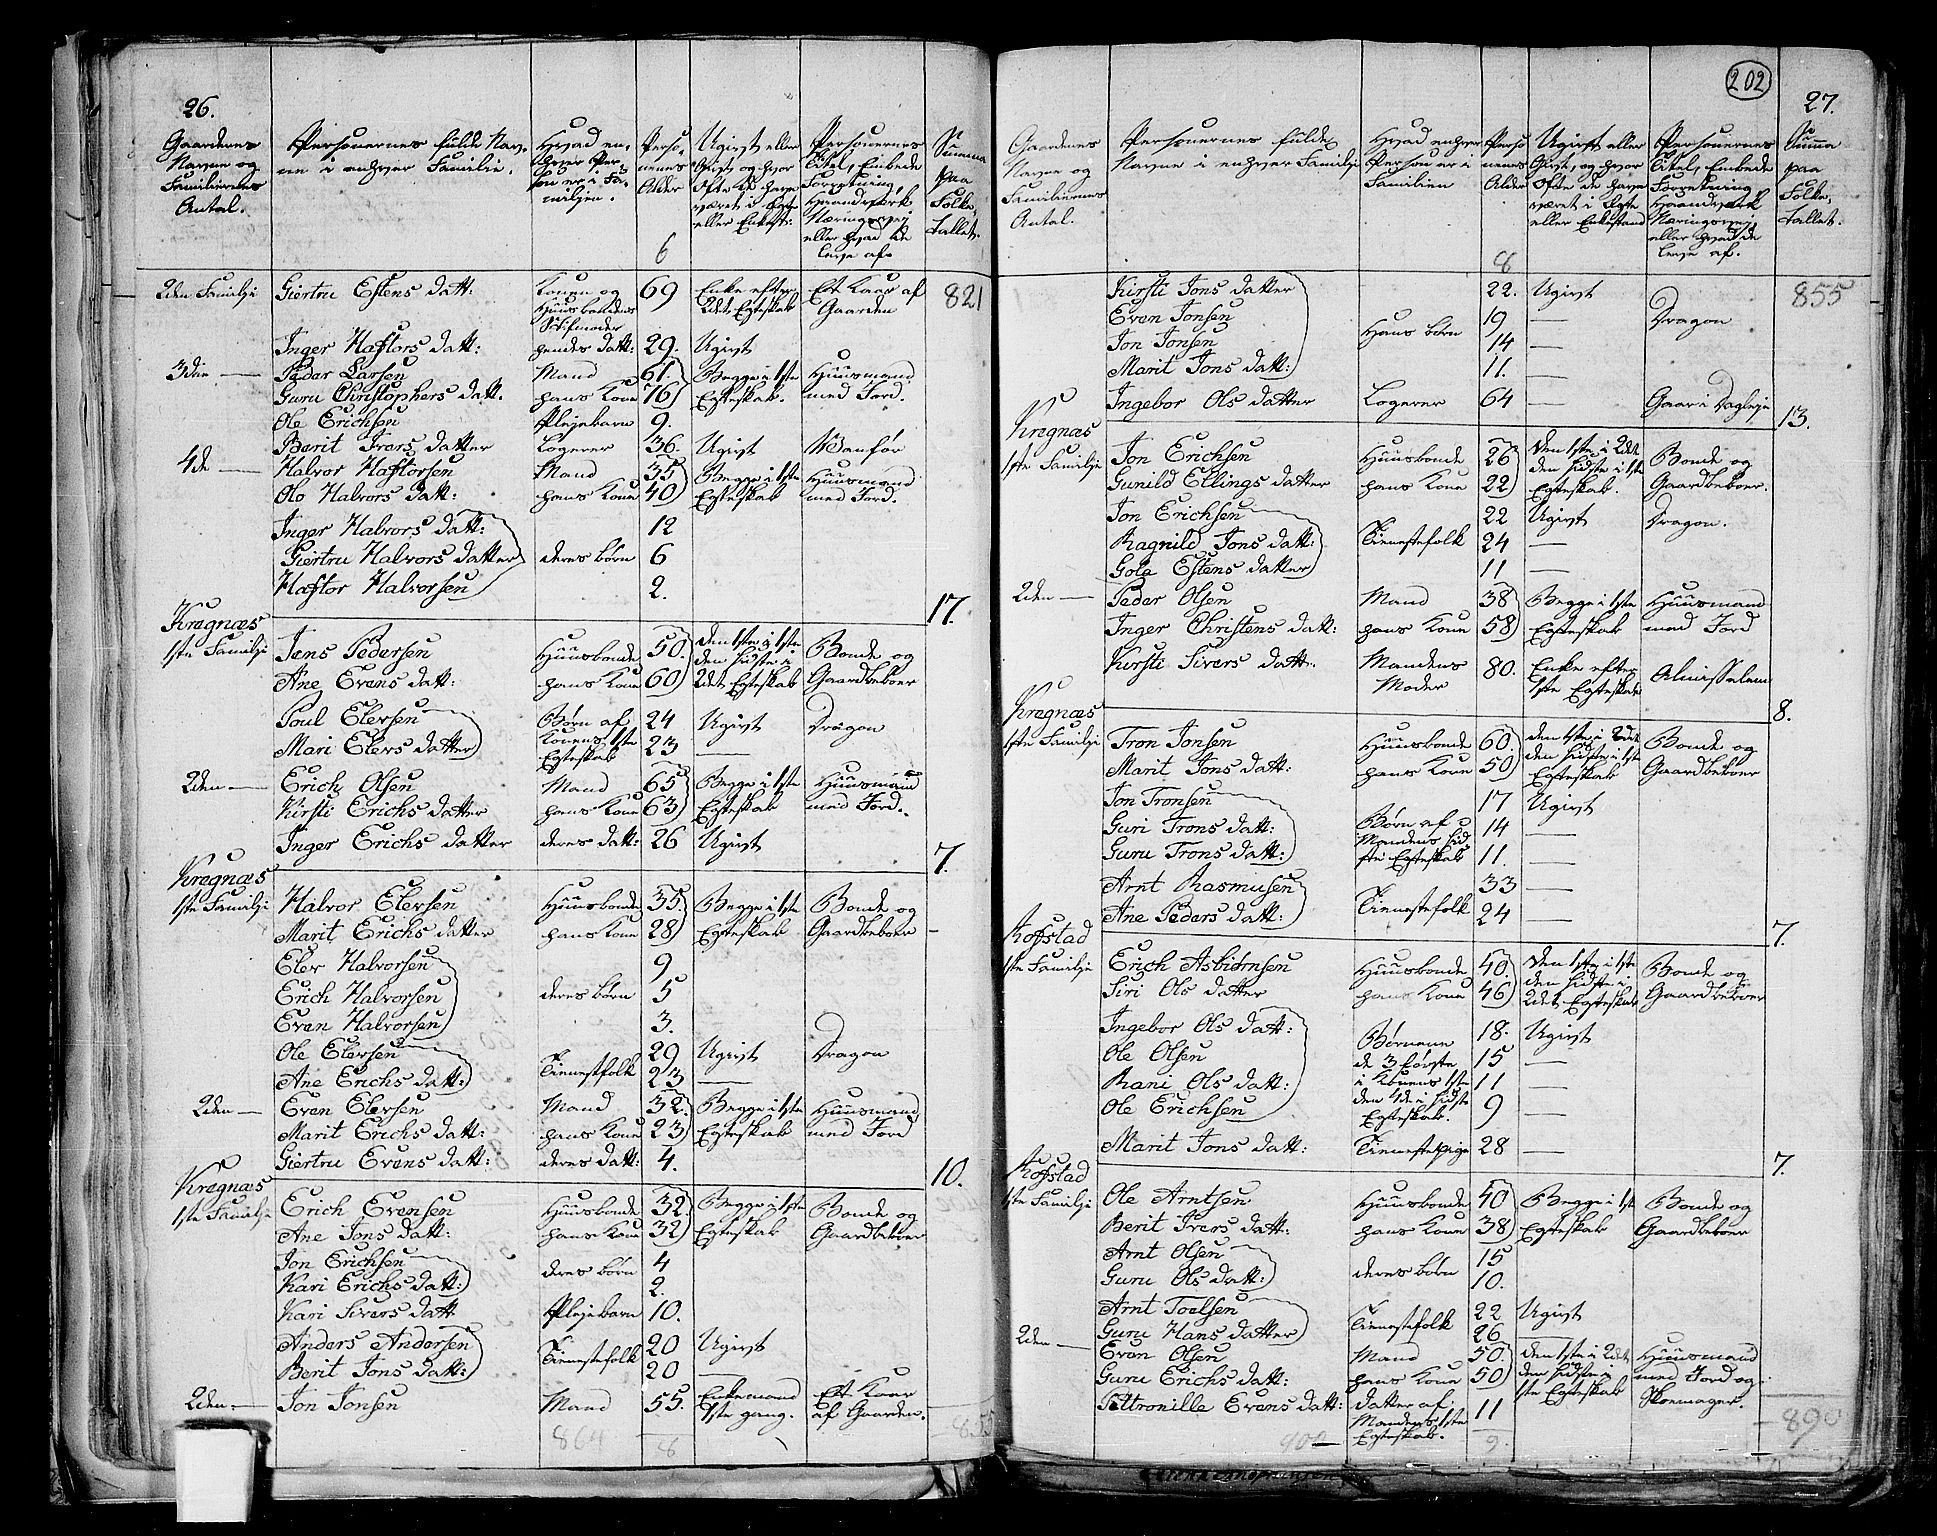 26.
Gaardenes Navne og Familiernes Antal. | Personernes fulde Navne i enhver Familie. | Hvad enhver Person er i Familien. | Personernes Alder | Ugivt eller Gift, og hvor ofte de have været i Egte eller Enkest: | Personernes Titel, Embede Forretning, Haandverk Næringsvej eller hvad de leve af. | Summa paa Folke-tallet.
6
2den Familje Giertru Estens datt: Konen og Huusbondens Stifmoder 69 Enke efter 2det Egteskab Et Kaar af Gaarden 821
Inger Haftors datt: hendes datt: 29. Ugivt
3die — Peder Larsen Mand 61. Begge i 1ste Huusmand
Guru Christophers datt. hans Kone 76 Egteskab. med Jord.
Ole Erichsen Plejebarn 9.
Berit Ivers datter Logerer 36. Ugivt Vanfør
4de — Halvor Haftorsen Mand 35 Begge i 1ste Huusmand
Olo Halvors datt: hans Kone 40 Egteskab med Jord.
Inger Halvors datt: 12
Giertru Halvors datter deres børn 6
Haftor Halvorsen 2.
17.
Kregnæs
1ste Familje Jens Pedersen Huusbonde 50. den 1ste i 1ste Bonde og
Ane Evens datt: hans Kone 60 den sidste i 2det Egteskab Gaardbeboer
Poul Elersen Børn af 24 Ugivt Dragon
Mari Elers datter Konens 1ste Egteskab 23 —
2den — Erich Olsen Mand 65 Begge i 1ste Huusmand
Kirsti Erichs datter hans Kone 63 Egteskab med Jord.
Inger Erichs datter deres datt: 26 Ugivt
7.
Kregnæs
1ste Familje Halvor Elersen Huusbonde 35. Begge i 1ste Bonde og
Marit Erichs datter hans Kone 28 Egteskab Gaardbeboer
Eler Halvorsen 9
Erich Halvorsen deres børn 5
Even Halvorsen 3.
Ole Elersen Tienestfolk 29 Ugivt Dragon
Ane Erichs datt: 23 —
2den — Even Elersen Mand 32. Begge i 1ste Huusmand
Marit Erichs datt: hans Kone 23 Egteskab med Jord
Giertru Evens datt: deres datt: 4.
10.
Kregnæs
1ste Familje Erich Evensen Huusbonde 32. Begge i 1ste Bonde og
Ane Jons datt: hans Kone 32 Egteskab Gaardbeboer
Jon Erichsen deres børn 4
Kari Erichs datt: 2.
Kari Sivers datt Plejebarn 10.
Anders Andersen Tienestefolk 20 Ugivt
Berit Jons datt: 20 —
2den — Jon Jonsen Mand 55. Enkemand 1ste gang. Et Kaar af Gaarden.
864 8 855
202
27.
Gaardenes Navne og Familiernes Antal. | Personernes fulde Navne i enhver Familje | Hvad enhver Person er i Familien | Personernes Alder | Ugivt eller Gift, og hvor ofte de have været i Egte eller Enkestand | Personernes Titel, Embede Forretning Haandverk Næringsvej eller hvad de leve af. | Summa paa Folke-tallet.
8
Kirsti Jons datter 22. Ugivt 855
Even Jonsen 19 — Dragon
Jon Jonsen Hans børn 14 —
Marit Jons datt: 11. —
Ingebor Ols datter Logerer 64 — Gaar i Dagleje
13.
Kregnæs
1ste Familje Jon Erichsen Huusbonde 26 den 1ste i 2det Bonde og
Gunild Ellings datter hans Kone 22 den sidste i 1ste Egteskab. Gaardbeboer.
Jon Erichsen 22 Ugivt Dragon.
Ragnild Jons datt: Tienestefolk 24 —
Gole Estens datter 11 —
2den — Peder Olsen Mand 38 Begge i 1ste Huusmand
Inger Christens datt: hans Kone 58 Egteskab med Jord
Kirsti Sivers datt: Mandens Moder 80. Enke efter 1ste Egteskab Almisselem
8.
Kregnæs
1ste Familje Tron Jonsen Huusbonde 60. den 1ste i 2det Bonde og
Marit Jons datt: hans Kone 50 den sidste i 1ste Egteskab Gaardbeboer
Jon Tronsen 17 Ugivt
Guri Trons datt: Børn af Mandens sidste Egteskab 14 —
Guru Trons datt: 11. —
Arnt Rasmusen Tienestefolk 33 —
Ane Peders datt: 24 —
7.
Kofstad
1ste Familje Erich Asbiørnsen Huusbonde 40. den 1ste i 1ste Bonde og
Siri Ols datter hans Kone 46 den sidste i 2det Egteskab Gaardbeboer
Ingebor Ols datt: Børnene 18. Ugivt
Ole Olsen de 3 første 15 —
Rani Ols datt: i Konens 1ste 11 —
Ole Erichsen den 4de i sidste Egteskab. 9 —
Marit Jons datt: Tienestepige 28 —
7.
Kofstad
1ste Familje Ole Arntsen Huusbonde 40 Begge i 1ste Bonde og
Berit Ivers datt: hans Kone 38 Egteskab Gaardbeboer
Arnt Olsen deres børn 15
Guru Ols datt: 10.
Arnt Toelsen Tienestefolk 22 Ugivt
Guru Hans datter 26 —
2den — Even Olsen Mand 50. den 1ste i 2det Huusmand
Guru Erichs datt: hans Kone 50 den sidste i 1ste Egteskab med Jord og Skomager.
Pettronille Evens datt: datter af Mandens 1ste Egteskab. 11
900 9. 890